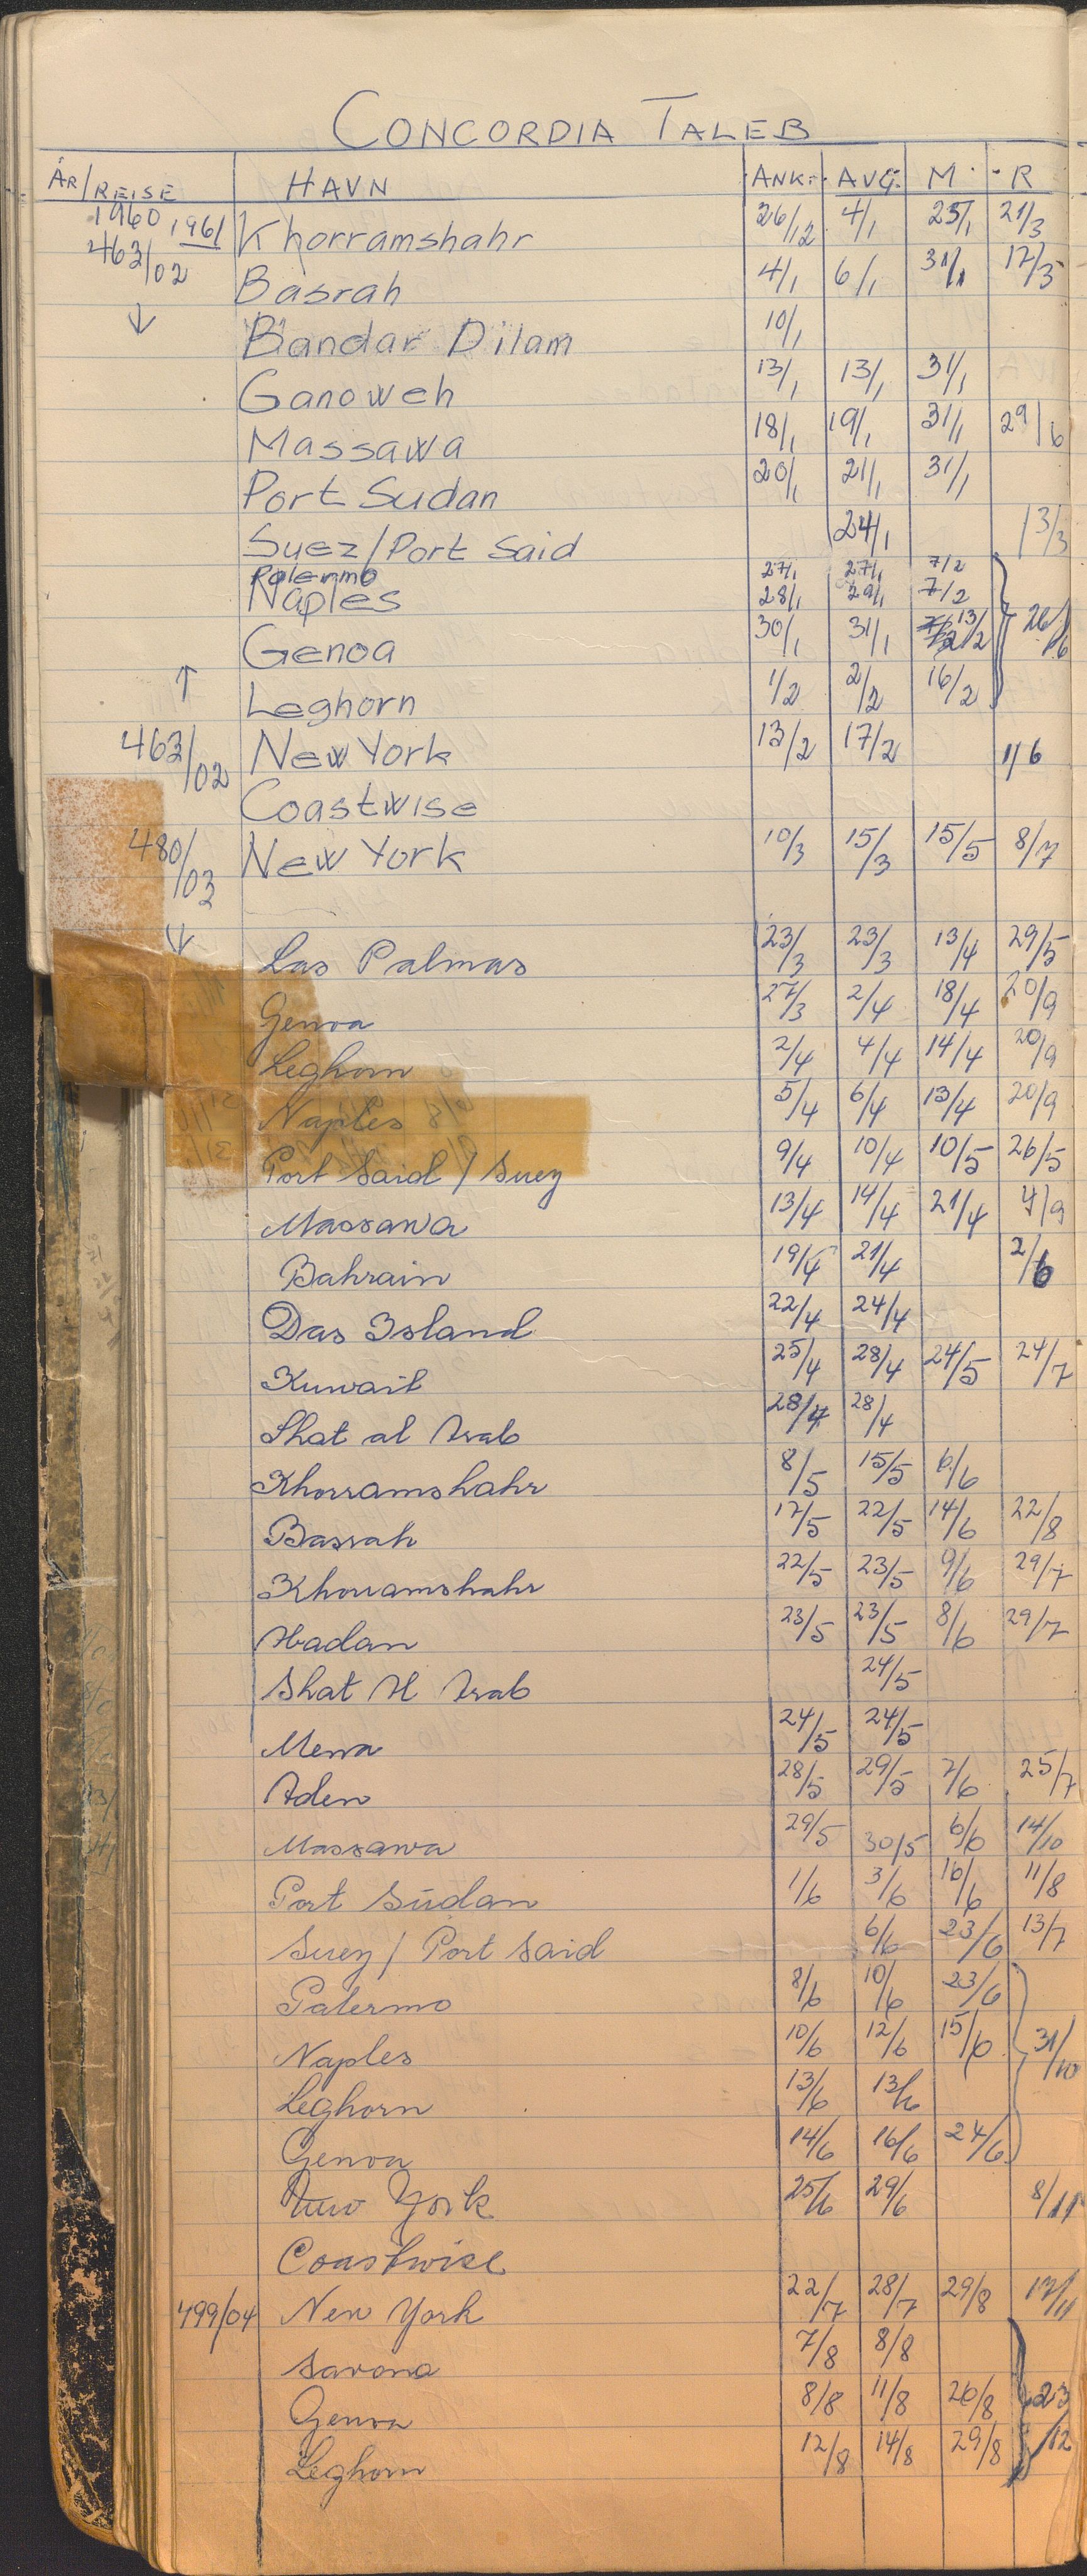 CONCORDIA TALEB
ÅR/REISE HAVN ANK. AVG. M. R
1960 1961 Khorramshahr 26/12 4/1 25/1 21/3
463/02 Basrah 4/1 6/1 31/1 17/3
↓ Bandar Dilam 10/1
Ganoweh 13/1 13/1 31/1
Massawa 18/1 19/1 31/1 29/6
Port Sudan 20/1 21/1 31/1
Suez/Port Said 24/1 13/3
Palermo 27/1 27/1 7/2
Naples 28/1 29/1 7/2
Genoa 30/1 31/1 13/2 26/6
↑ Leghorn 1/2 2/2 16/2
463/02 New York 13/2 17/2 1/6
Coastwise
480/03 New York 10/3 15/3 15/5 8/7
↓ Las Palmas 23/3 23/3 13/4 29/5
Genoa 27/3 2/4 18/4 20/9
Leghorn 2/4 4/4 14/4 20/9
Naples 5/4 6/4 13/4 20/9
Port Said / Suez 9/4 10/4 10/5 26/5
Massawa 13/4 14/4 21/4 4/9
Bahrain 19/4 21/4 2/6
Das Island 22/4 24/4
Kuwait 25/4 28/4 24/5 24/7
Shat al Arab 28/4 28/4
Khorramshahr 8/5 15/5 6/6
Basrah 17/5 22/5 14/6 22/8
Khorramshahr 22/5 23/5 9/6 29/7
Abadan 23/5 23/5 8/6 29/7
Shat Al Arab 24/5
Mena 24/5 24/5
Aden 28/5 29/5 7/6 25/7
Massawa 29/5 30/5 6/6 14/10
Port Sudan 1/6 3/6 16/6 11/8
Suez / Port Said 6/6 23/6 13/7
Palermo 8/6 10/6 23/6
Naples 10/6 12/6 15/6 31/10
Leghorn 13/6 13/6
Genoa 14/6 16/6 24/6
New York 25/6 29/6 8/11
Coastwise
499/04 New York 22/7 28/7 29/8 17/11
Savona 7/8 8/8
Genoa 8/8 11/8 26/8 23/12
Leghorn 12/8 14/8 29/8